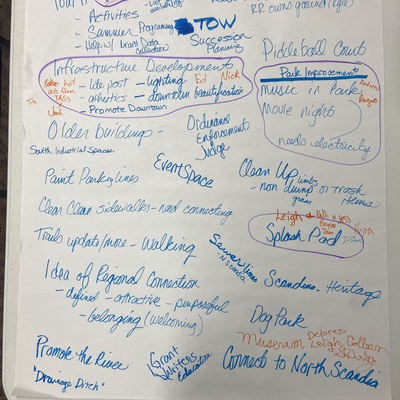 RR owns ground (legal)
- Activities
- Summer Programing
- Help w/ Grant Data Collection
TOW
Succession Planning
Pickleball Court
Infrastructure Developments
- lite post - lighting Ed Nick
- athetics - downtown beautification
- Promote Downtown
Tim
Park Improvements
music in Park
Movie night
needs electricity
Older buildings -
South Industrial Spaces
Ordinance Enforcement Judge
Event Space
Clean Up limbs
- non dump or trash items
grass
Paint Parking lines
Clear Clean sidewalks - need connecting
Leigh
Splash Pad
Trails update/more - Walking
Sewer lines
N Scandia
Idea of Regional Connection
- defined - attractive - purposeful
- belonging (welcoming)
Scandina. Heritage
Dog Park
Museum Delores Leigh, Colleen
Promote the River
"Drainage Ditch"
Grant Writers Education
Connect to North Scandia